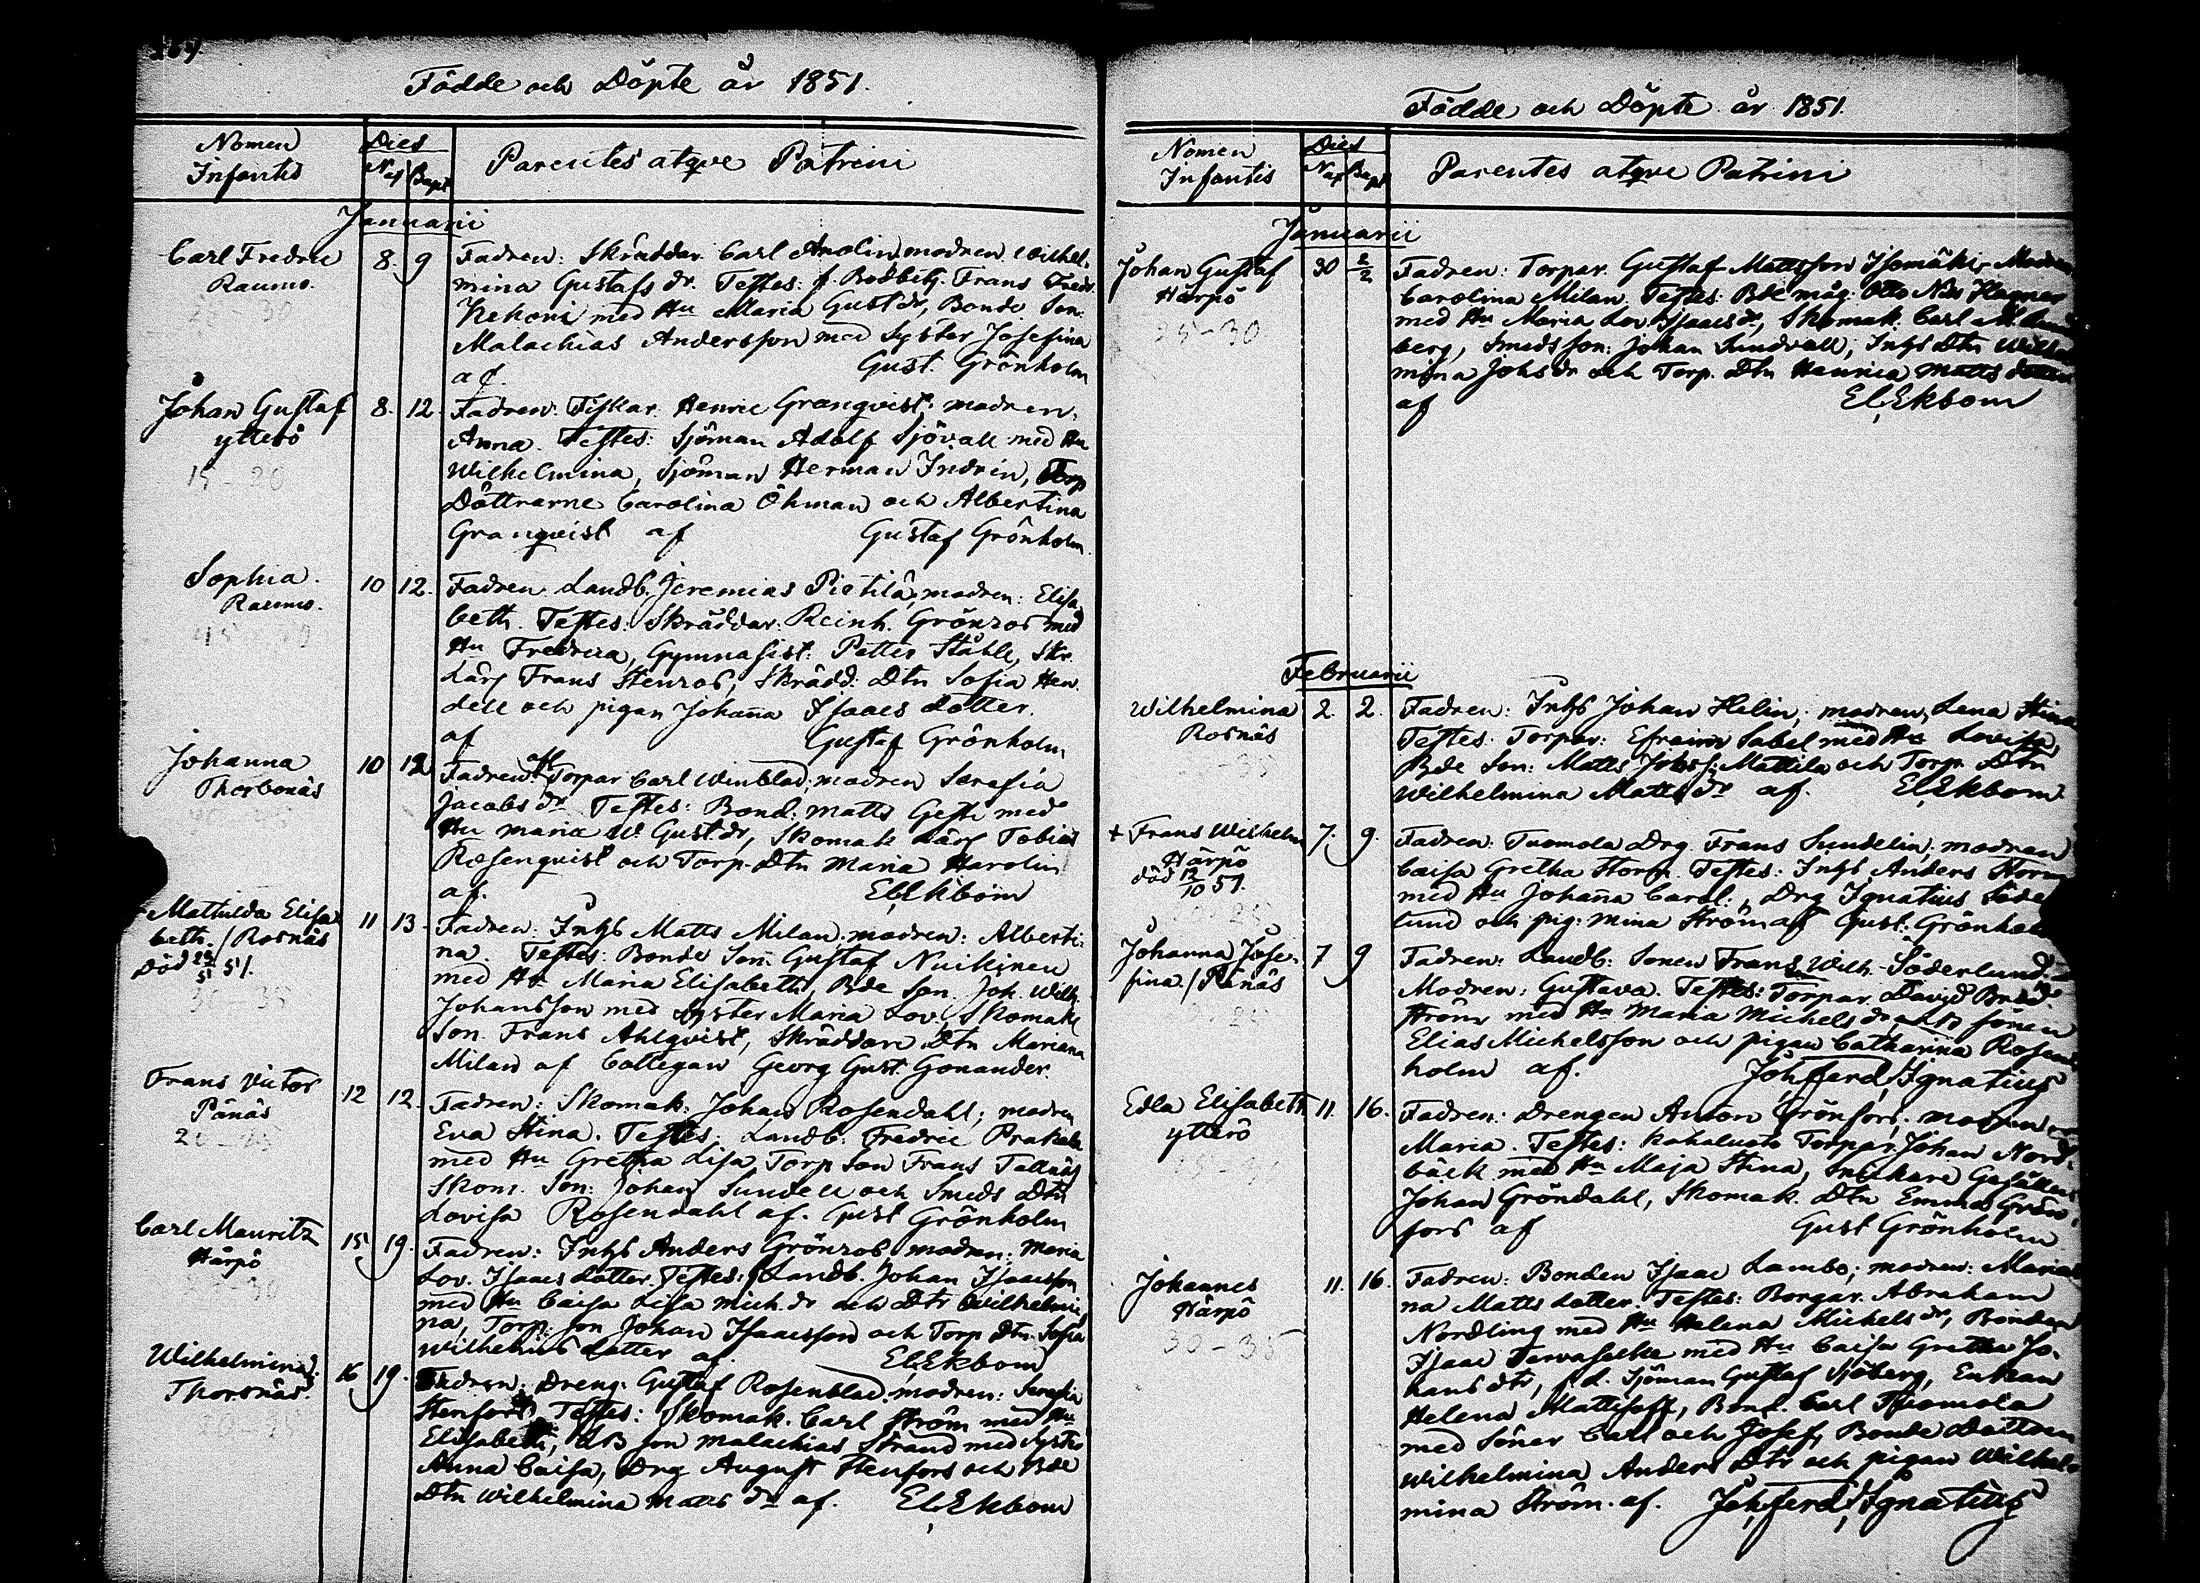 Födde och Döpte år 1851.
Nomen Infantis
Dies
Nat Bapt
Parentes atqve Patrini
Januarii
Carl Fredric
Raumo.
8. 9
Fadren: Skräddar. Carl Amolin, modren Wilhel-
mina Gustafs dr. Testes: f. Bodbetj. Frans Fredr.
Kekoni med Hu Maria Gust dr, Bonde Son.
Malachias Andersson med Syster Josefina
af. Gust. Grönholm
Johan Gustaf
ytterö
15-20
8. 12.
Fadren: Fiskar. Henric Granqvist; modren.
Anna. Testes: Sjöman Adolf Sjövall med Hu
Wilhelmina, Sjöman Herman Indrén, Torp
Döttrarne Carolina Öhman och Albertina
Granqvist af Gustaf Grönholm.
Sophia.
Raumo.
10 12.
Fadren Landb. Jeremias Pietilä, modren: Elisa-
beth. Testes: Skräddar: Reinh. Grönroos med
Hu Fredrica, Gymnasist: Petter Ståhle, Skr.
Lärg Frans Stenroos, Skrädd: Dtn Sofia Hen-
dell och pigan Johanna Isaacs dotter.
af Gustaf Grönholm
Johanna
Thorbonäs
10 12
Fadren Torpar Carl Winblad; modren Serafia
Jacobs dr Testes: Bond: Matts Gesti med
Hu Maria W Gust dr, Skomak Lärg Tobias
Rosenqvist och Torp. Dtn Maria Harolin
af. El. Ekbom
Mathilda Elisa-
beth. / Rosnäs
Död 29/5 51.
30 35
11 13.
Fadren: Inhs Matts Milan; modren: Alberti-
na. Testes: Bonde Son: Gustaf Nuikinen
med Hu Maria Elisabeth, Bde Son. Joh. Wilh.
Johansson med Syster Maria Lov. Skomak
Son. Frans Ahlqvist, Skräddare Dtn Mariana
Milan af Collegan Georg Gust. Gonander.
Frans Victor
Pånäs
20-25
12 12.
Fadren: Skomak: Johan Rosendahl; modren
Eva Stina. Testes: Landb: Fredric Prakala
med Hu Gretha Lisa Torp Son Frans Tallnäs
Skom. Son: Johan Sundell och Smeds Dtn
Lovisa Rosendahl af. Gust Grönholm
Carl Mauritz
Härpö
15 19.
Fadren: Inhs Anders Grönroos, modren: Maria
Lov. Isaacs dotter. Testes: Landb. Johan Isaacsson
med Hu Caisa Lisa Mich. dr och Dtr Wilhelmi-
na, Torp: Son Johan Isaacsson och Torp Dtn Sofia
Wilhelms dotter af. El. Ekbom
Wilhelmina
Thorsnäs.
16 19.
Fadren: Dreng. Gustaf Rosenblad; modren: Serafia
Stenfors Testes: Skomak. Carl Ström med Hu
Elisabeth, LB son Malachias Strand med Syster
Anna Caisa, Drg August Stenfors och Bde
Dtn Wilhelmina Matts dr af. El. Ekbom
Födde och Döpte år 1851.
Nomen Infantis
Dies
Nat Bapt
Parentes atqve Patrini
Januarii
Johan Gustaf
Härpö
25-30
30 2/2
Fadren: Torpar. Gustaf Mattsson Isomäki, Modren
Carolina Milan. Testes: Bde måg: Otto
med Hu Maria Lov Isaacs dr, Skomak: Carl
berg, Smeds son: Johan Sundvall, Inhs Dtn Wilhel-
mina Johs dr och Torp. Dtn Henrica Matts dotter
af El. Ekbom
Februarii
Wilhelmina
Rosnäs
2. 2.
Fadren: Inhs Johan Helin; modren, Lena Stina
Testes: Torpar: Efraim Sabel med Hu Lovisa,
Bde Son: Matts Johss: Mattila och Torp. Dtn
Wilhelmina Matts dr af. El. Ekbom
+ Frans Wilhelm
Härpö
död 12/10 51.
7. 9.
Fadren: Tuomola Drg. Frans Sundelin; modren
Caisa Gretha Storm. Testes: Inhs Anders Storm
med Hu Johanna Carol:, Drg Ignatius Söder-
lund och pig: Mina Ström af Gust. Grönholm
Johanna Jose-
fina. / Pånäs
7 9
Fadren: Landb: Sonen Frans Wilh. Söderlund.
Modren: Gustava. Testes: Torpar. David
Ström med Hu Maria Michels dr, sonen
Elias Michelsson och pigan Catharina Rosen-
holm af. Joh. Ferd. Ignatius
Edla Elisabeth
ytterö
11. 16.
Fadren: Drengen Anton Grönfors; modren
Maria. Testes: Torpar. Johan Nord-
bäck med Hu Maja Stina, Snickare Gesällen
Johan Gröndahl, Skomak. Dtn Emma Grön-
fors af Gust Grönholm
Johannes
Härpö
30-35
11. 16.
Fadren: Bonden Isaac Lambo; modren: Maria-
na Matts dotter. Testes: Borgar. Abraham
Nordling med Hu Helena Michels dr, Bonden
Isaac Tervaselke med Hu Caisa Gretha Jo-
hans dtr, f.d. Sjöman Gustaf Sjöberg, Enkan
Helena Mattsson, Bond. Carl Thomola
med Söner Carl och Josef, Bonde Dottren
Wilhelmina Anders Dtr och pigan Wilhel-
mina Ström. af. Joh. Ferd. Ignatius